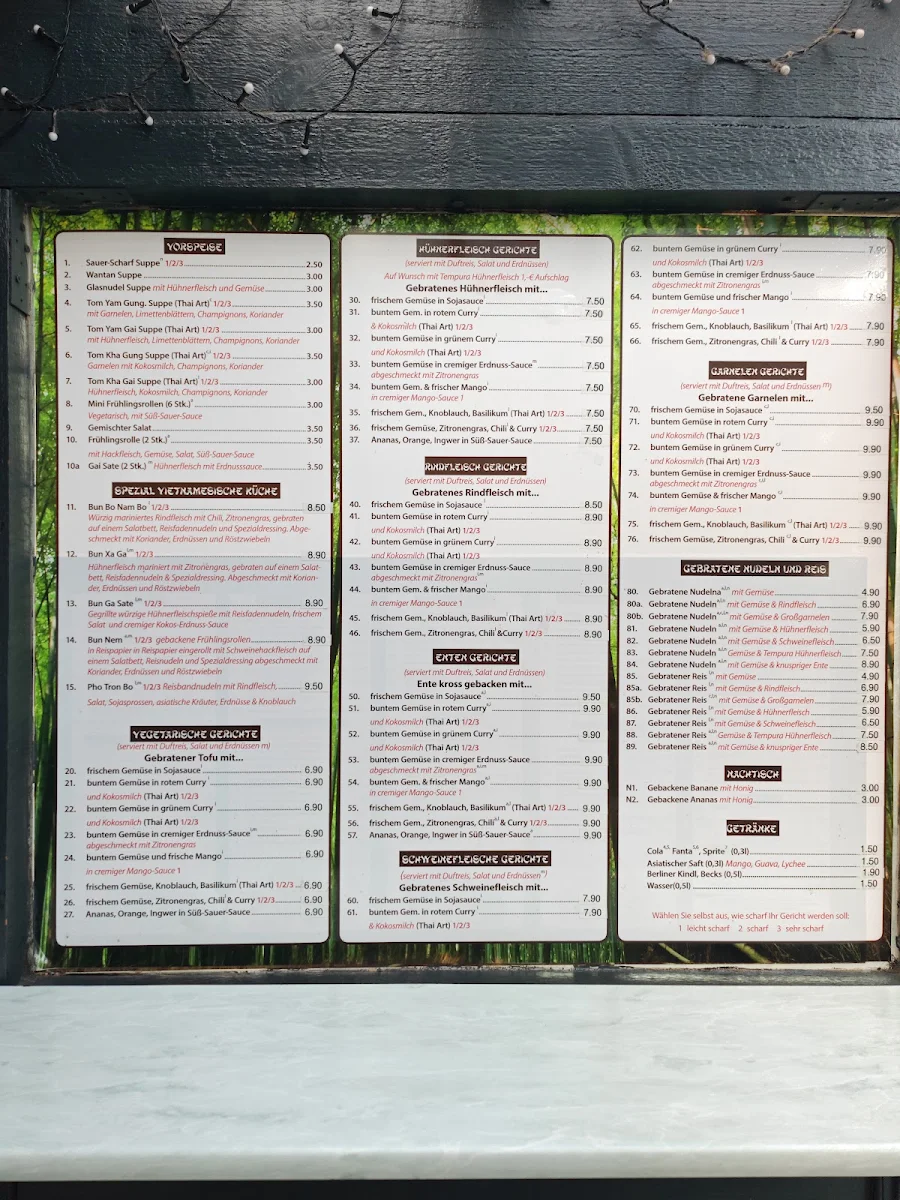 VORSPEISE
1. Sauer-Scharf Suppe 1/2/3 2.50
2. Wantan Suppe 3.00
3. Glasnudel Suppe mit Hühnerfleisch und Gemüse 3.00
4. Tom Yam Gung. Suppe (Thai Art) 1/2/3 3.50
mit Garnelen, Limettenblättern, Champignons, Koriander
5. Tom Yam Gai Suppe (Thai Art) 1/2/3 3.00
mit Hühnerfleisch, Limettenblättern, Champignons, Koriander
6. Tom Kha Gung Suppe (Thai Art) 1/2/3 3.50
Garnelen mit Kokosmilch, Champignons, Koriander
7. Tom Kha Gai Suppe (Thai Art) 1/2/3 3.00
Hühnerfleisch, Kokosmilch, Champignons, Koriander
8. Mini Frühlingsrollen (6 Stk.) 3.00
Vegetarisch, mit Süß-Sauer-Sauce
9. Gemischter Salat 3.50
10. Frühlingsrolle (2 Stk.) 3.50
mit Hackfleisch, Gemüse, Salat, Süß-Sauer-Sauce
10a Gai Sate (2 Stk.) Hühnerfleisch mit Erdnusssauce 3.50
SPEZIAL VIETNAMESISCHE KÜCHE
11. Bun Bo Nam Bo 1/2/3 8.50
Würzig mariniertes Rindfleisch mit Chili, Zitronengras, gebraten
auf einem Salatbett, Reisfadennudeln und Spezialdressing. Abge-
schmeckt mit Koriander, Erdnüssen und Röstzwiebeln
12. Bun Xa Ga 1/2/3 8.90
Hühnerfleisch mariniert mit Zitronengras, gebraten auf einem Salat-
bett, Reisfadennudeln & Spezialdressing. Abgeschmeckt mit Korian-
der, Erdnüssen und Röstzwiebeln
13. Bun Ga Sate 1/2/3 8.90
Gegrillte würzige Hühnerfleischspieße mit Reisfadennudeln, frischem
Salat und cremiger Kokos-Erdnuss-Sauce
14. Bun Nem 1/2/3 gebackene Frühlingsrollen 8.90
in Reispapier in Reispapier eingerollt mit Schweinehackfleisch auf
einem Salatbett, Reisnudeln und Spezialdressing abgeschmeckt mit
Koriander, Erdnüssen und Röstzwiebeln
15. Pho Tron Bo 1/2/3 Reisbandnudeln mit Rindfleisch, 9.50
Salat, Sojasprossen, asiatische Kräuter, Erdnüsse & Knoblauch
VEGETARISCHE GERICHTE
(serviert mit Duftreis, Salat und Erdnüssen m)
Gebratener Tofu mit...
20. frischem Gemüse in Sojasauce 6.90
21. buntem Gemüse in rotem Curry 6.90
und Kokosmilch (Thai Art) 1/2/3
22. buntem Gemüse in grünem Curry 6.90
und Kokosmilch (Thai Art) 1/2/3
23. buntem Gemüse in cremiger Erdnuss-Sauce 6.90
abgeschmeckt mit Zitronengras
24. buntem Gemüse und frische Mango 6.90
in cremiger Mango-Sauce 1
25. frischem Gemüse, Knoblauch, Basilikum (Thai Art) 1/2/3 6.90
26. frischem Gemüse, Zitronengras, Chili & Curry 1/2/3 6.90
27. Ananas, Orange, Ingwer in Süß-Sauer-Sauce 6.90
HÜHNERFLEISCH GERICHTE
(serviert mit Duftreis, Salat und Erdnüssen)
Auf Wunsch mit Tempura Hühnerfleisch 1,-€ Aufschlag
Gebratenes Hühnerfleisch mit...
30. frischem Gemüse in Sojasauce 7.50
31. buntem Gem. in rotem Curry 7.50
& Kokosmilch (Thai Art) 1/2/3
32. buntem Gemüse in grünem Curry 7.50
und Kokosmilch (Thai Art) 1/2/3
33. buntem Gemüse in cremiger Erdnuss-Sauce 7.50
abgeschmeckt mit Zitronengras
34. buntem Gem. & frischer Mango 7.50
in cremiger Mango-Sauce 1
35. frischem Gem., Knoblauch, Basilikum (Thai Art) 1/2/3 7.50
36. frischem Gemüse, Zitronengras, Chili & Curry 1/2/3 7.50
37. Ananas, Orange, Ingwer in Süß-Sauer-Sauce 7.50
RINDFLEISCH GERICHTE
(serviert mit Duftreis, Salat und Erdnüssen)
Gebratenes Rindfleisch mit...
40. frischem Gemüse in Sojasauce 8.50
41. buntem Gemüse in rotem Curry 8.90
und Kokosmilch (Thai Art) 1/2/3
42. buntem Gemüse in grünem Curry 8.90
und Kokosmilch (Thai Art) 1/2/3
43. buntem Gemüse in cremiger Erdnuss-Sauce 8.90
abgeschmeckt mit Zitronengras
44. buntem Gem. & frischer Mango 8.90
in cremiger Mango-Sauce 1
45. frischem Gem., Knoblauch, Basilikum (Thai Art) 1/2/3 8.90
46. frischem Gem., Zitronengras, Chili &Curry 1/2/3 8.90
ENTEN GERICHTE
(serviert mit Duftreis, Salat und Erdnüssen)
Ente kross gebacken mit...
50. frischem Gemüse in Sojasauce 9.50
51. buntem Gemüse in rotem Curry 9.90
und Kokosmilch (Thai Art) 1/2/3
52. buntem Gemüse in grünem Curry 9.90
und Kokosmilch (Thai Art) 1/2/3
53. buntem Gemüse in cremiger Erdnuss-Sauce 9.90
abgeschmeckt mit Zitronengras
54. buntem Gem. & frischer Mango 9.90
in cremiger Mango-Sauce 1
55. frischem Gem., Knoblauch, Basilikum (Thai Art) 1/2/3 9.90
56. frischem Gem., Zitronengras, Chili & Curry 1/2/3 9.90
57. Ananas, Orange, Ingwer in Süß-Sauer-Sauce 9.90
SCHWEINEFLEISCHE GERICHTE
(serviert mit Duftreis, Salat und Erdnüssen m)
Gebratenes Schweinefleisch mit...
60. frischem Gemüse in Sojasauce 7.90
61. buntem Gem. in rotem Curry 7.90
& Kokosmilch (Thai Art) 1/2/3
62. buntem Gemüse in grünem Curry 7.90
und Kokosmilch (Thai Art) 1/2/3
63. buntem Gemüse in cremiger Erdnuss-Sauce 7.90
abgeschmeckt mit Zitronengras
64. buntem Gemüse und frischer Mango 7.90
in cremiger Mango-Sauce 1
65. frischem Gem., Knoblauch, Basilikum (Thai Art) 1/2/3 7.90
66. frischem Gem., Zitronengras, Chili & Curry 1/2/3 7.90
GARNELEN GERICHTE
(serviert mit Duftreis, Salat und Erdnüssen m)
Gebratene Garnelen mit...
70. frischem Gemüse in Sojasauce 9.50
71. buntem Gemüse in rotem Curry 9.90
und Kokosmilch (Thai Art) 1/2/3
72. buntem Gemüse in grünem Curry 9.90
und Kokosmilch (Thai Art) 1/2/3
73. buntem Gemüse in cremiger Erdnuss-Sauce 9.90
abgeschmeckt mit Zitronengras
74. buntem Gemüse & frischer Mango 9.90
in cremiger Mango-Sauce 1
75. frischem Gem., Knoblauch, Basilikum (Thai Art) 1/2/3 9.90
76. frischem Gemüse, Zitronengras, Chili & Curry 1/2/3 9.90
GEBRATENE NUDELN UND REIS
80. Gebratene Nudelna mit Gemüse 4.90
80a. Gebratene Nudeln mit Gemüse & Rindfleisch 6.90
80b. Gebratene Nudeln mit Gemüse & Großgarnelen 7.90
81. Gebratene Nudeln mit Gemüse & Hühnerfleisch 5.90
82. Gebratene Nudeln mit Gemüse & Schweinefleisch 6.50
83. Gebratene Nudeln Gemüse & Tempura Hühnerfleisch 7.50
84. Gebratene Nudeln mit Gemüse & knuspriger Ente 8.90
85. Gebratener Reis mit Gemüse 4.90
85a. Gebratener Reis mit Gemüse & Rindfleisch 6.90
85b. Gebratener Reis mit Gemüse & Großgarnelen 7.90
86. Gebratener Reis mit Gemüse & Hühnerfleisch 5.90
87. Gebratener Reis mit Gemüse & Schweinefleisch 6.50
88. Gebratener Reis Gemüse & Tempura Hühnerfleisch 7.50
89. Gebratener Reis mit Gemüse & knuspriger Ente 8.50
NACHTISCH
N1. Gebackene Banane mit Honig 3.00
N2. Gebackene Ananas mit Honig 3.00
GETRÄNKE
Cola, Fanta, Sprite (0,3l) 1.50
Asiatischer Saft (0,3l) Mango, Guava, Lychee 1.50
Berliner Kindl, Becks (0,5l) 1.90
Wasser(0,5l) 1.50
Wählen Sie selbst aus, wie scharf Ihr Gericht werden soll:
1 leicht scharf 2 scharf 3 sehr scharf